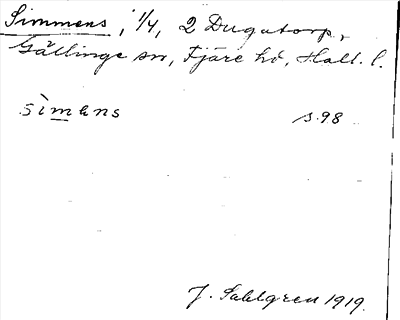 Simmens, 1/4, 2 Dugatorp,
Gällinge sn, Fjäre hd, Hall. l.
sìmens s. 98
J. Sahlgren 1919.